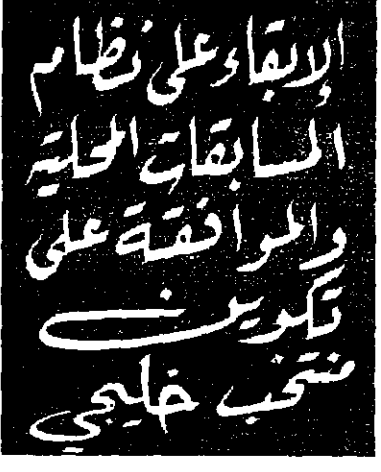 الإبقاء على نظام
المسابقات المحلية
والموافقة على
تكوين
منتخب خليجي